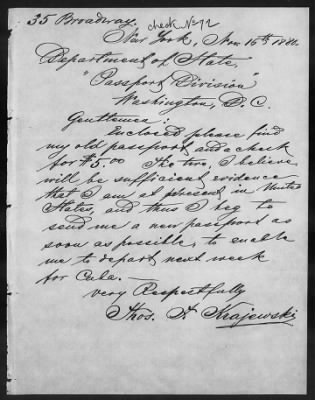 35 Broadway. check No 72
New York, Nov 16th 188
Department of State,
"Passport Division"
Washington, D.C.
Gentlemen:
Enclosed please find
my old passport and a check
for $5.00 The two, I believe
will be sufficient evidence
that I am at present in United
States, and thus I beg to
send me a new passport as
soon as possible, to enable
me to depart next week
for Cuba. —
Very Respectfully
Thos. F. Krajewski